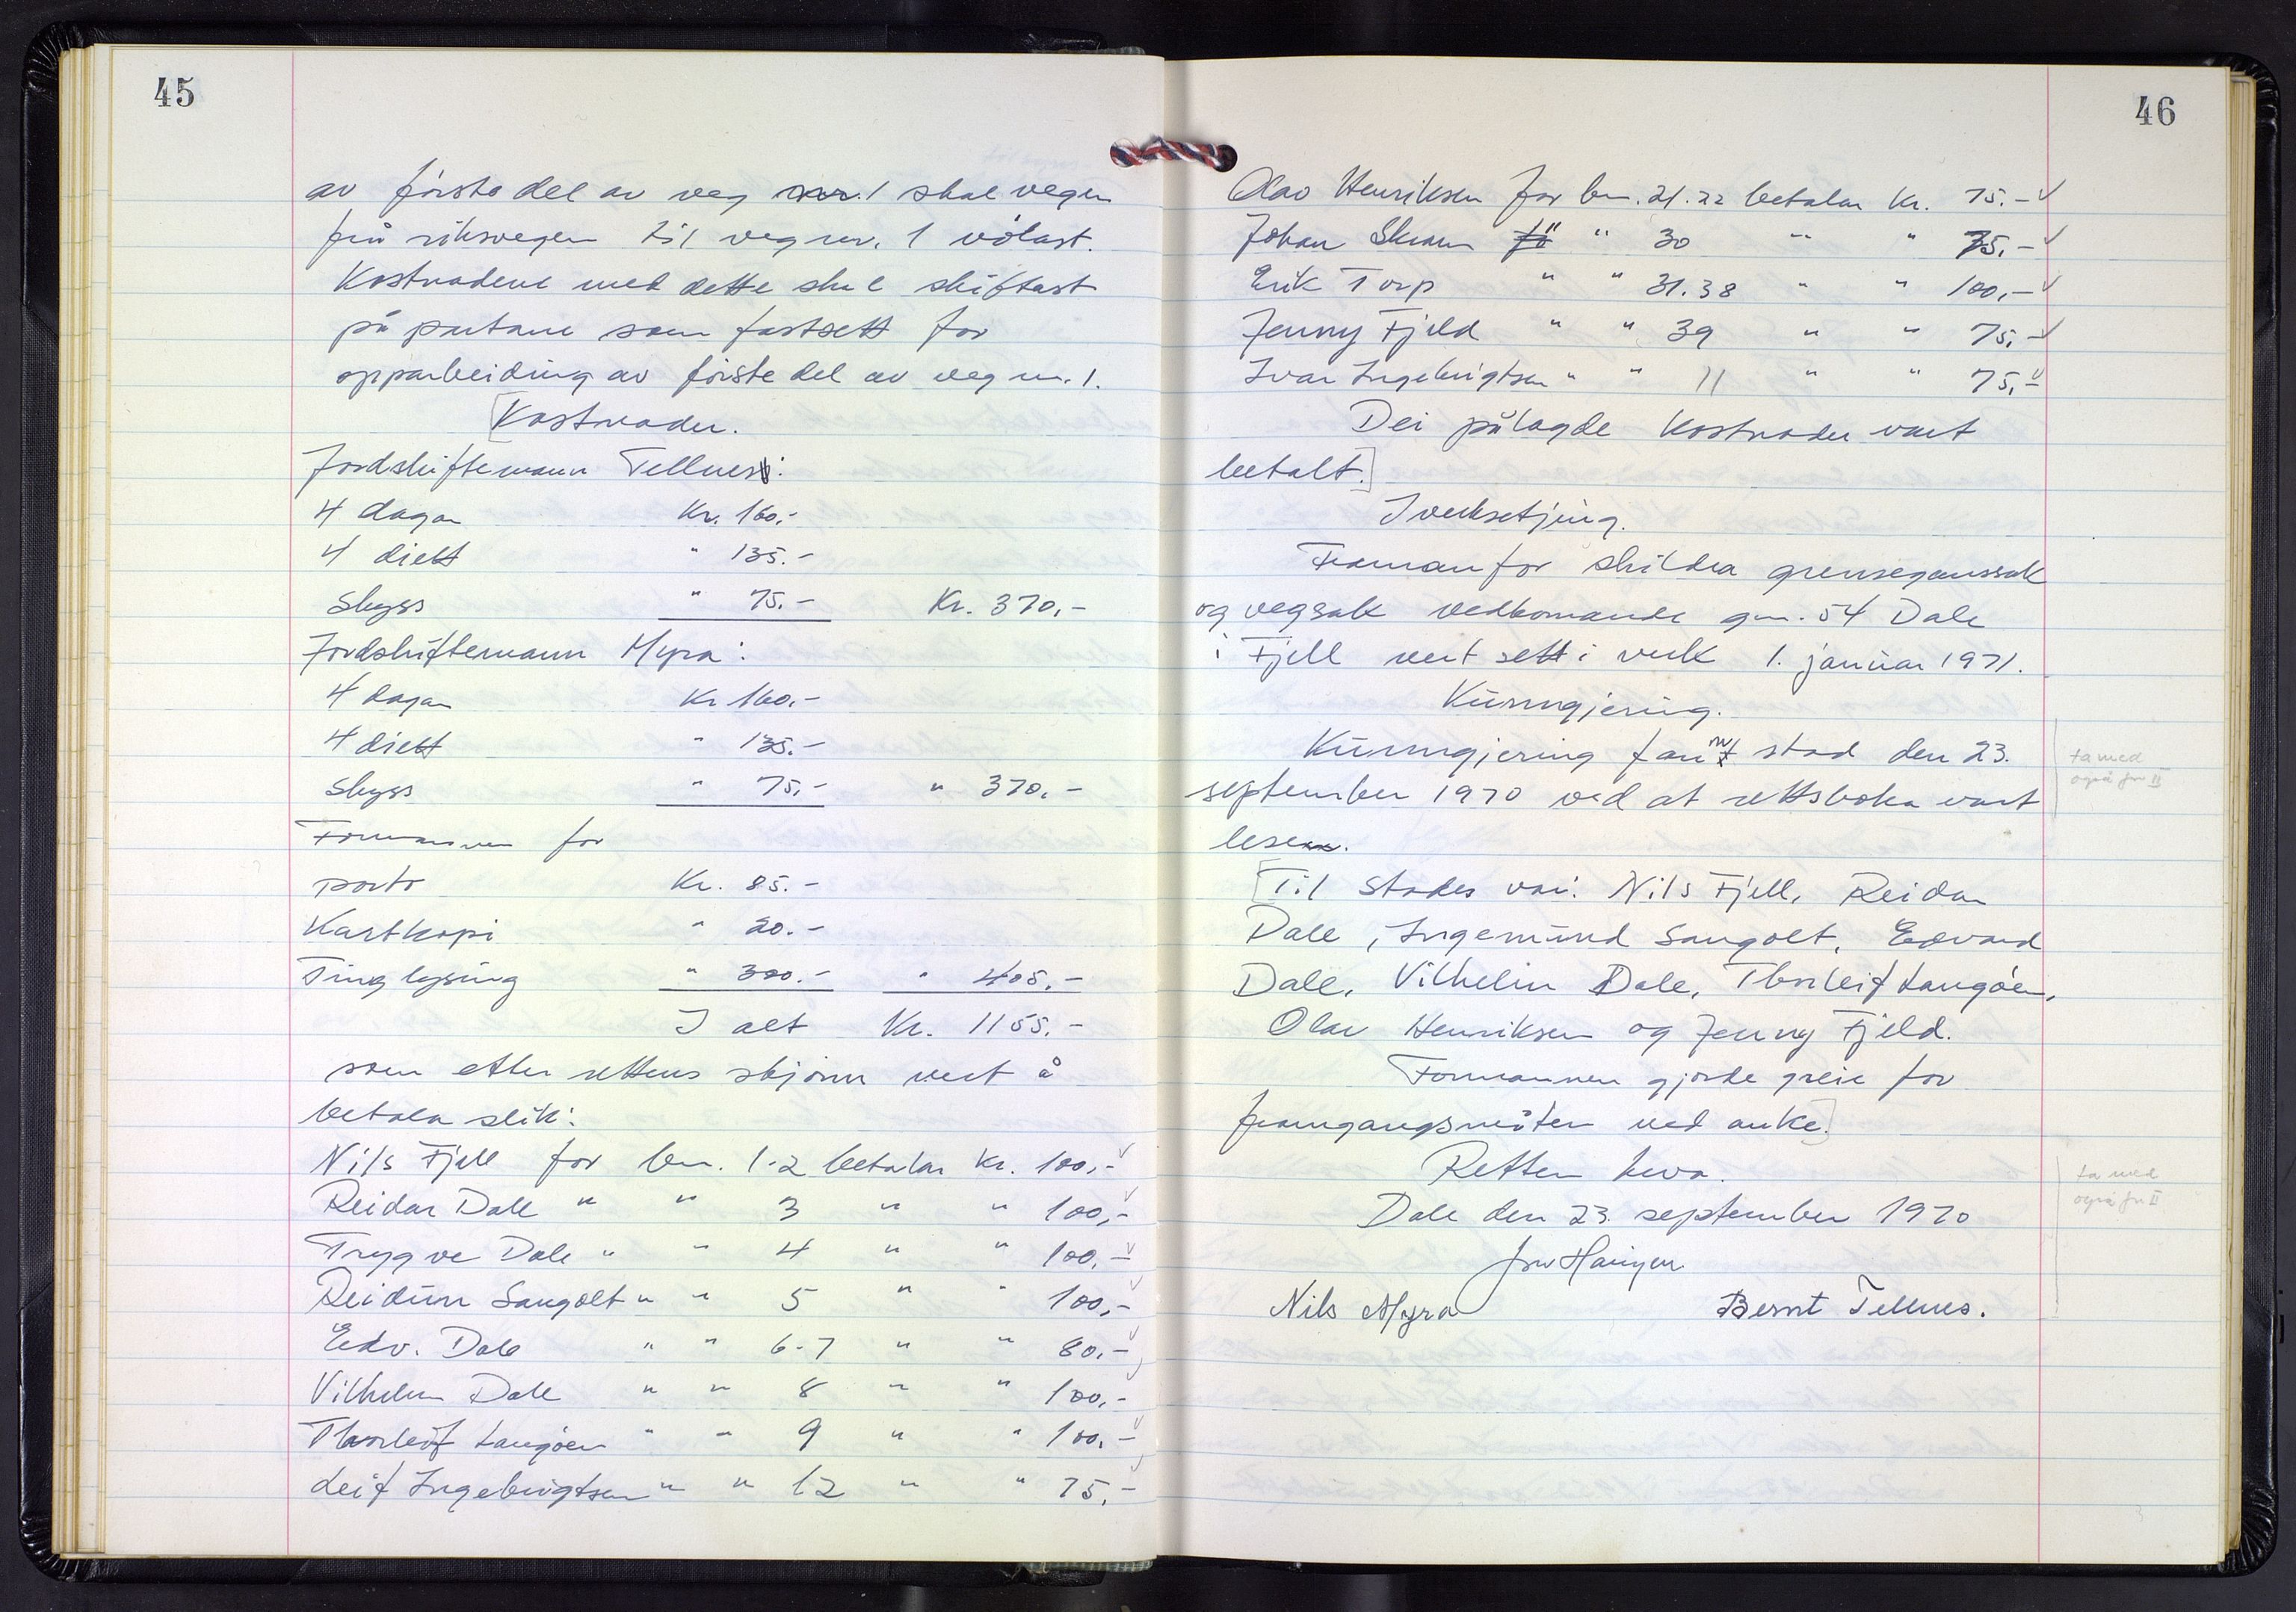 45
av första del av veg nr. 1 skal vegen
frå riksvegen til veg nr. 1 vølast.
Kostnadene med dette skal skiftast
på partane som fastsett for
opparbeiding av første del av veg nr. 1.
[Kostnader.
Jordskiftemann Tellnes:
4 dagar Kr. 160.-
4 diett " 135.-
Skyss " 75.- Kr. 370,-
Jordskiftemann Myra:
4 dagar Kr 160.-
4 diett " 135.-
Skyss " 75,- " 370.-
Formannen for
porto Kr. 85.-
Kartkopi " 20.-
Tinglysing " 300.- " 405.-
I alt Kr. 1155.-
som etter rettens skjønn vert å
betala slik:
Nils Fjell for bn. 1-2 betalar Kr. 100,- v
Reidar Dale " " 3 " " 100,- v
Trygve Dale " " 4 " " 100,- v
Reidun Sangolt " " 5 " " 100,- v
Edv. Dale " " 6-7 " " 80,- v
Vilhelm Dale " " 8 " " 100,- v
Thorleif Langøen " " 9 " " 100,- v
Leif Ingebrigtsen " " 12 " " 75,- v
46
Olav Henriksen for bn. 21.22 betalar Kr. 75.- v
Johan Skram " " 30 " " 75,- v
Erik Torp " " 31.38 " " 100,- v
Jenny Fjeld " " 39 " " 75,- v
Ivar Ingebrigtsen " " 11 " " 75,- v
Dei pålagde kostnader vart
betalt.]
Iverksetjing.
Framanfor skildra grensegangssak
og vegsak vedkomande gnr. 54 Dale
i Fjell vert sett i verk 1. januar 1971.
Kunngjering.
Kunngjering fann stad den 23.
september 1970 ved at rettsboka vart
lesen.
[Til stades var: Nils Fjell, Reidar
Dale, Ingemund Sangolt, Edvard
Dale, Vilhelm Dale, Thorleif Langøen,
Olav Henriksen og Jenny Fjeld.
Formannen gjorde greie for
framgangsmåten ved anke.]
Retten heva.
Dale den 23. september 1970
Nils Myra Bernt Tellnes.
ta med
også for II
ta med
også for II